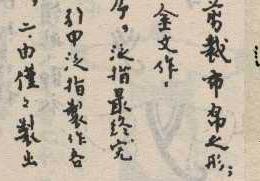 剪裁布帛之形；
金文作。
序。泛指最終完
引申泛指製作各
。二由僅之製出